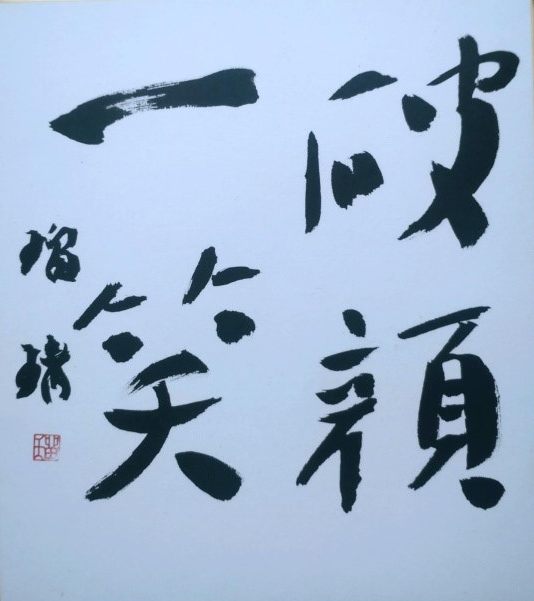 破顔
一笑
瑠璃